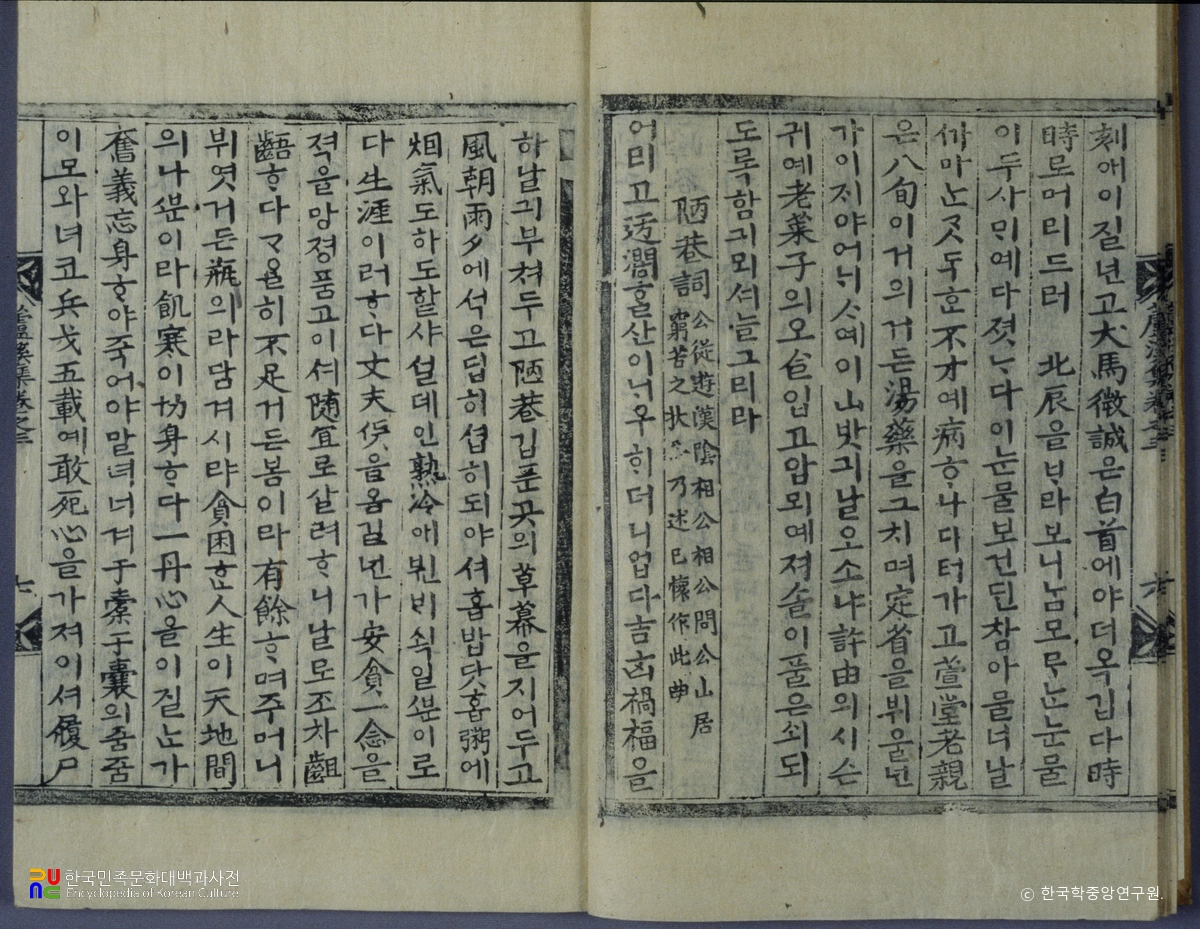 刻애이질년고犬馬微誠은白首에야더옥깁다時
時로머리드러 北辰을ᄇᆞ라보니ᄂᆞᆷ모ᄅᆞᄂᆞᆫ눈물
이두사ᄆᆡ예다젓ᄂᆞ다이눈물보건ᄃᆡᆫ참아물너날
가마ᄂᆞᆫᄀᆞᆺ득ᄒᆞᆫ不才예病ᄒᆞ나다터가고萱堂老親
은八旬이거의거든湯藥을그치며定省을뷔울넌
가이지야어ᄂᆡᄉᆞ예이山밧긔날오소냐許由의시슨
귀예老萊子의오ᄉᆞᆯ입고압뫼예져솔이풀은쇠되
도록함긔뫼셔늘그리라
陋巷詞 公從遊漢陰相公相公問公山居
窮苦之狀公乃述已懷作此曲
어리고迂濶ᄒᆞᆯ산이ᄂᆡ우ᄒᆡ더니업다吉凶禍福을
하날긔부쳐두고陋巷깁푼곳의草幕을지어두고
風朝雨夕에석은딥히셥히되야셔홉밥닷홉粥에
烟氣도하도할샤설데인熟冷애뷘ᄇᆡ쇡일ᄲᅮᆫ이로
다生涯이러ᄒᆞ다丈夫ᄠᅳᆺ을옴길넌가安貧一念을
젹을망졍품고이셔隨宜로살려ᄒᆞ니날로조차齟
齬ᄒᆞ다ᄀᆞ을히不足거든봄이라有餘ᄒᆞ며주머니
뷔엿거든甁의라담겨시랴貧困ᄒᆞᆫ人生이天地間
의나ᄲᅮᆫ이라飢寒이切身ᄒᆞ다一丹心을이질ᄂᆞᆫ가
奮義忘身ᄒᆞ야죽어야말녀너겨于槖于囊의줌줌
이모와녀코兵戈五載예敢死心을가져이셔履尸
蘆溪集卷之三
七
한국민족문화대백과사전
Encyclopedia of Korean Culture
ⓒ 한국학중앙연구원.